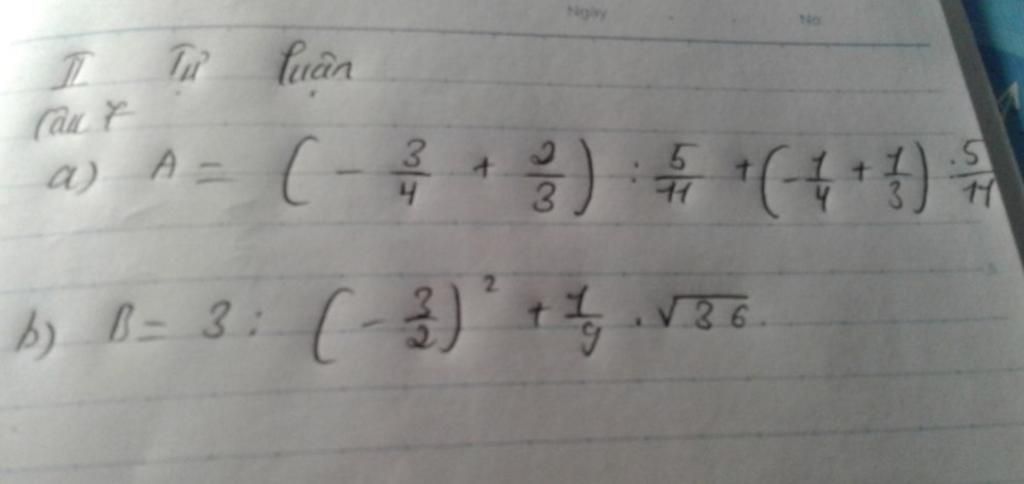 Ngày No
II Tự luận
Câu 7
a) A = ( - 3/4 + 2/3 ) : 5/11 + ( - 1/4 + 1/3 ) : 5/11
b) B = 3 : ( - 3/2 )² + 1/9 . √36.